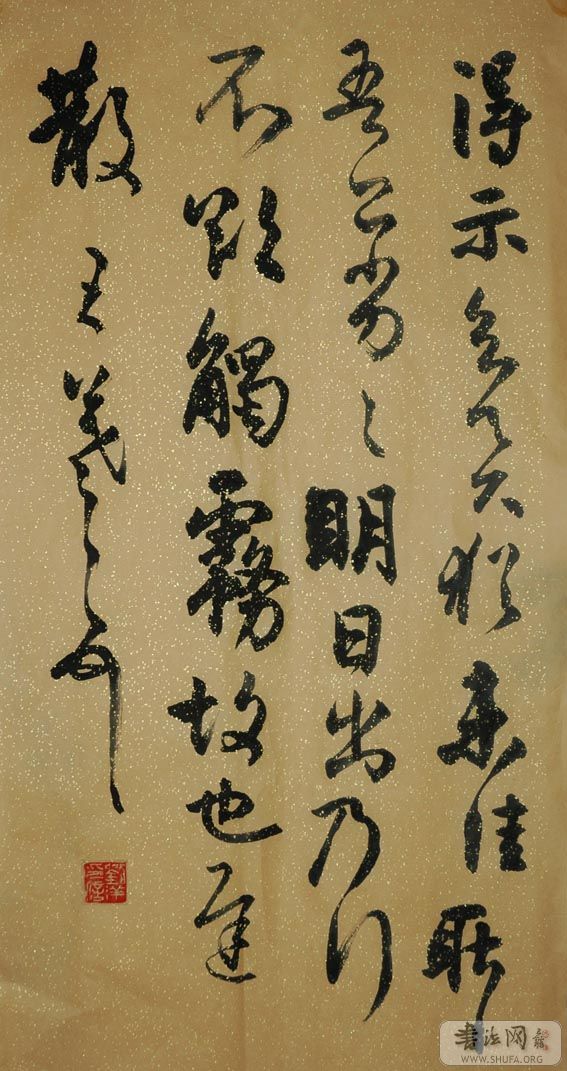 得示知足下猶未佳耿
吾亦劣〻明日出乃行
不欲觸霧故也遲
散王羲之頓首
書法网
WWW.SHUFA.ORG